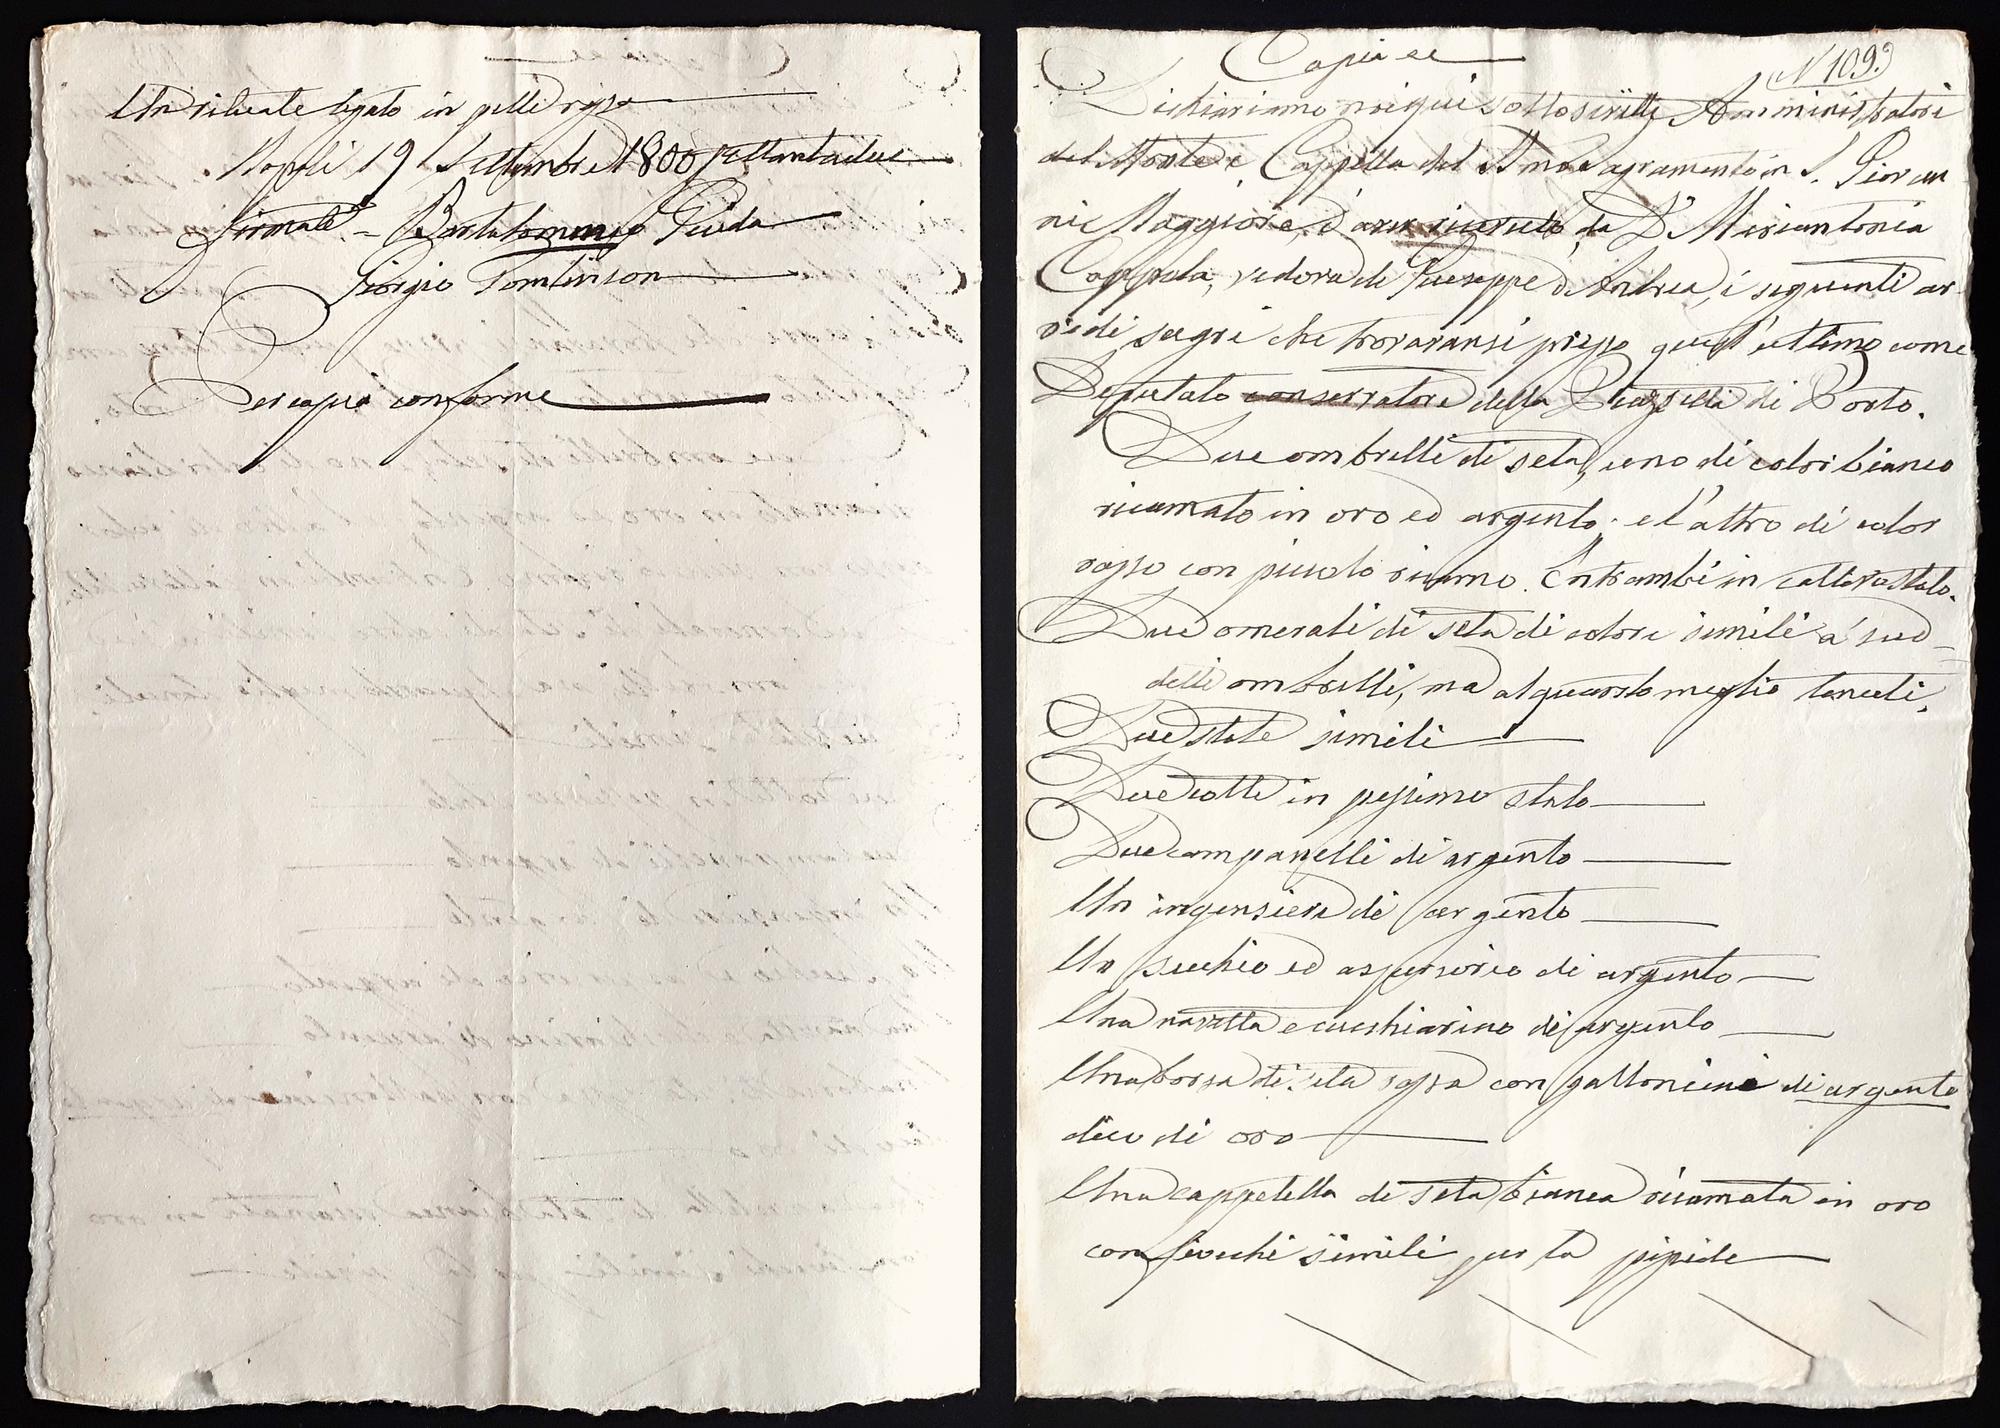 Copia ec
N 1099
Dichiariamo noi qui sottoscritti Amministratori
del Monte e Cappella del SSmo Sagramento in S. Giovan
ni Maggiore, d'aver ricevuto da Da Mariantonia
Coppola, vedova di Giuseppe d'Andrea, i seguenti ar-
redi sagri che trovavansi presso quest'ultimo come
Deputato conservatore della di Porto.
Due ombrelli di seta, uno di color bianco
ricamato in oro ed argento; e l'altro di color
rosso con piccolo ricamo. Entrambi in cattivo stato.
Due omerali di seta di colore simili a' sud-
detti ombrelli, ma alquanto meglio tenuti.
Due stole simili
Due cotte in pessimo stato
Due campanelli di argento
Un ingensiere di argento
Un secchio ed aspersorio di argento
Una navetta e cucchiarino di argento
Una borsa di seta rossa con galloncino di argento
dico di oro
Una cappetella di seta bianca ricamata in oro
con fiocchi simili per la pisside
Un rituale legato in pelle rossa
Napoli 19 Settembre 1800settantadue
Firmati - Bartolommeo Guida
Giorgio Tomlinson
Per copia conforme